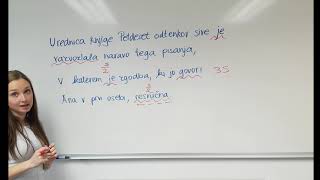 Urednica knjige Petdeset odtenkov sive je
razvozlala naravo tega pisanja,
3/2
v katerem je zgodba, ki jo govori 3S
2/2
Ana v prvi osebi, resnična.